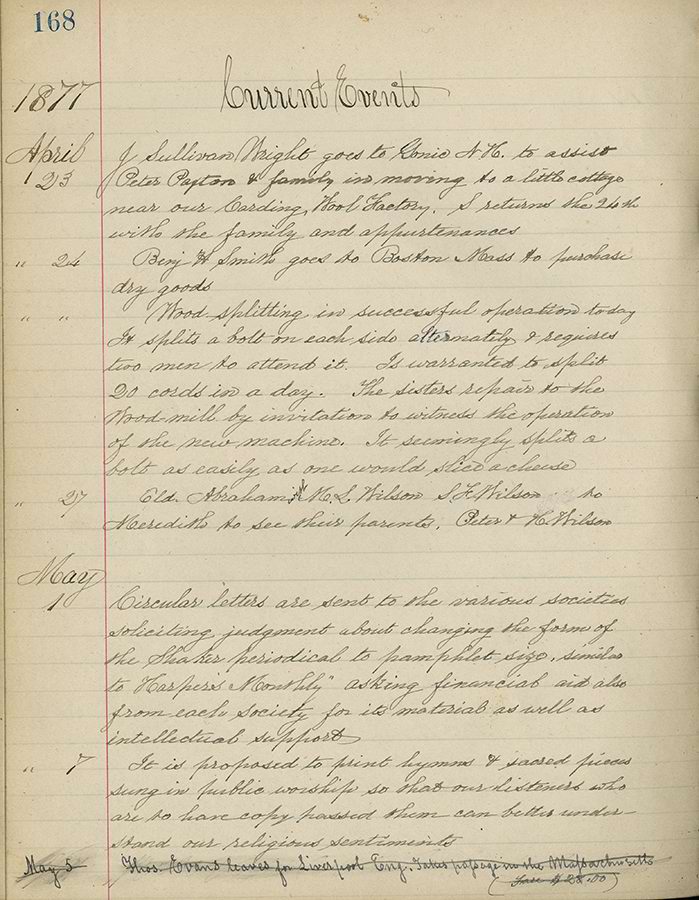 168
1877 Current Events
April
23 J Sullivan Wright goes to Gonic N H. to assist
Peter Payton & family in moving to a little cottage
near our Carding, Wool Factory. S returns the 24th
with the family and appurtenances
" 24 Benj H Smith goes to Boston Mass to purchase
dry goods
" " Wood splitting in successful operation today
It splits a bolt on each side alternately & requires
two men to attend it. Is warranted to split
20 cords in a day. The sisters repair to the
Wood-mill by invitation to witness the operation
of the new machine. It seemingly splits a
bolt as easily as one would slice a cheese
" 27 Eld. Abraham, M. L. Wilson S. F. Wilson to
Meredith to see their parents, Peter & H. Wilson
May
1 Circular letters are sent to the various societies
soliciting judgment about changing the form of
the Shaker periodical to pamphlet size, similar
to Harper's Monthly" asking financial aid also
from each Society for its material as well as
intellectual support
" 7 It is proposed to print hymns & sacred pieces
sung in public worship so that our listeners who
are to have copy passed them can better under-
stand our religious sentiments
May 5 Thos. Evans leaves for Liverpool Eng. Takes passage in the Massachusetts
(Fare $28.00)